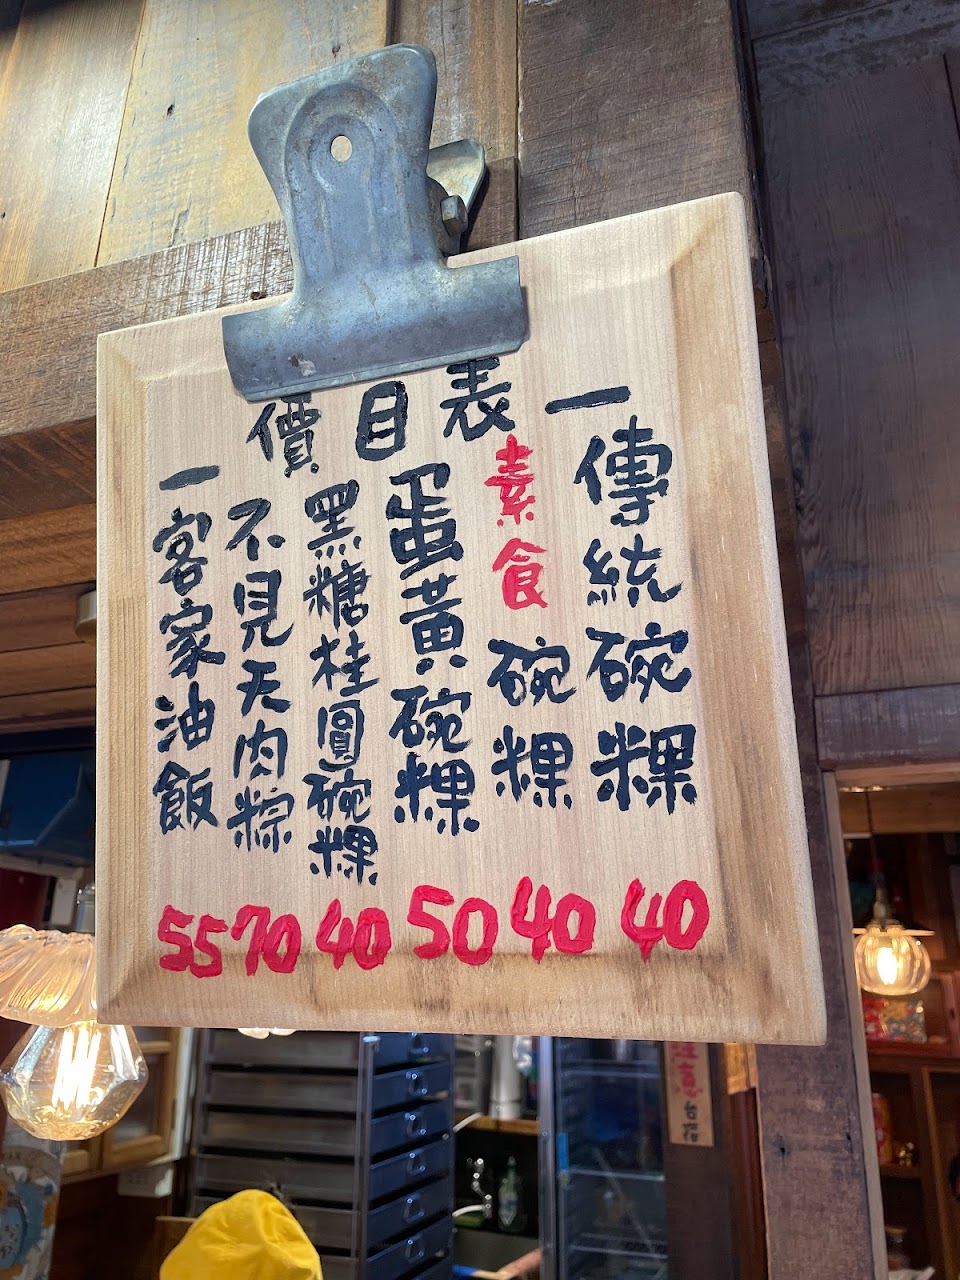 價目表
一傳統碗粿 40
素食碗粿 40
蛋黃碗粿 50
黑糖桂圓碗粿 40
不見天肉粽 70
一客家油飯 55